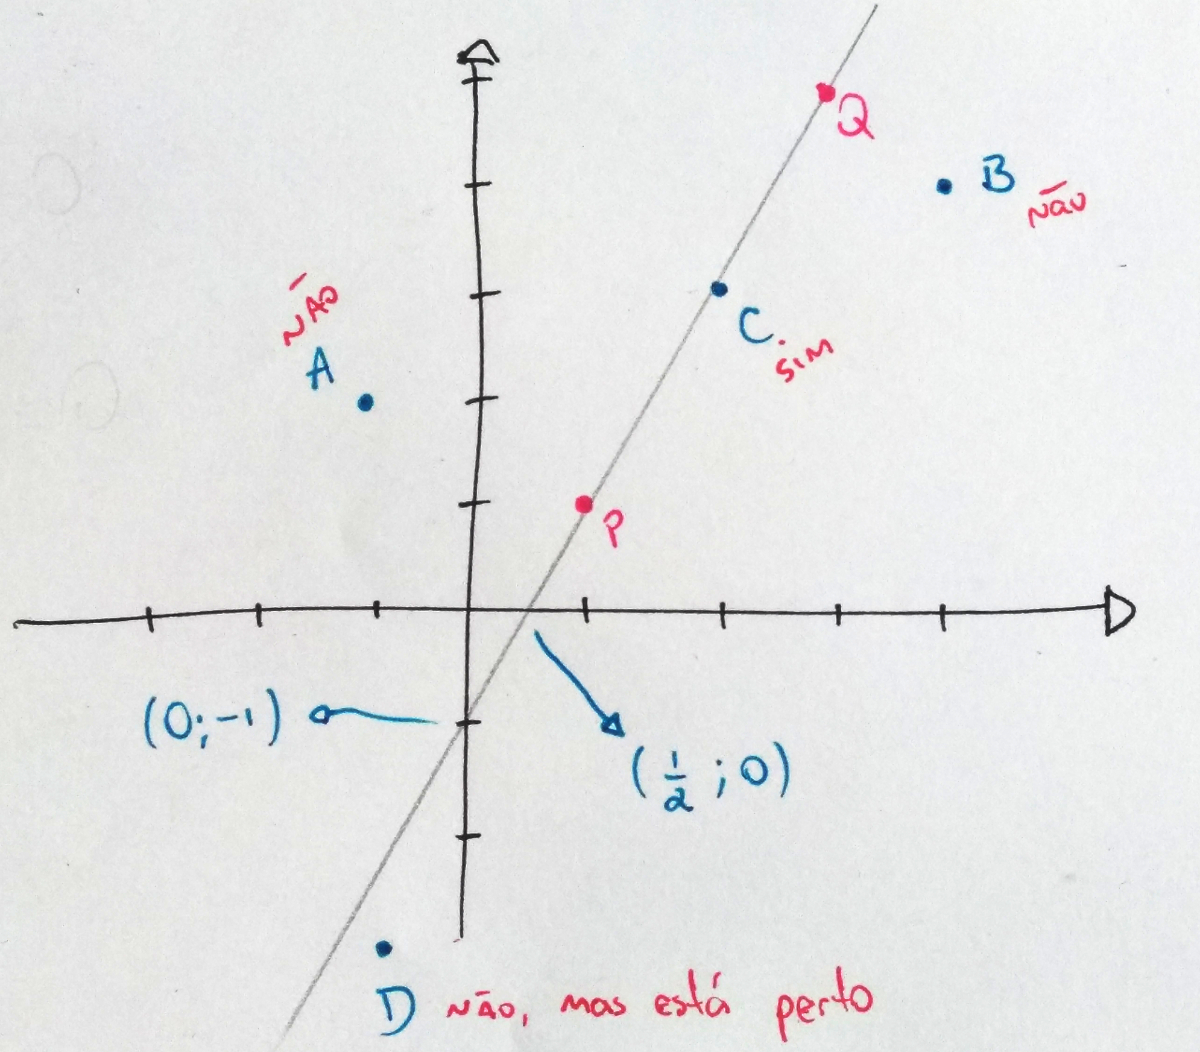 Q
B
Não
NÃO
A
C
sim
P
(0;-1)
(1/2 ; 0)
D NÃO, mas está perto